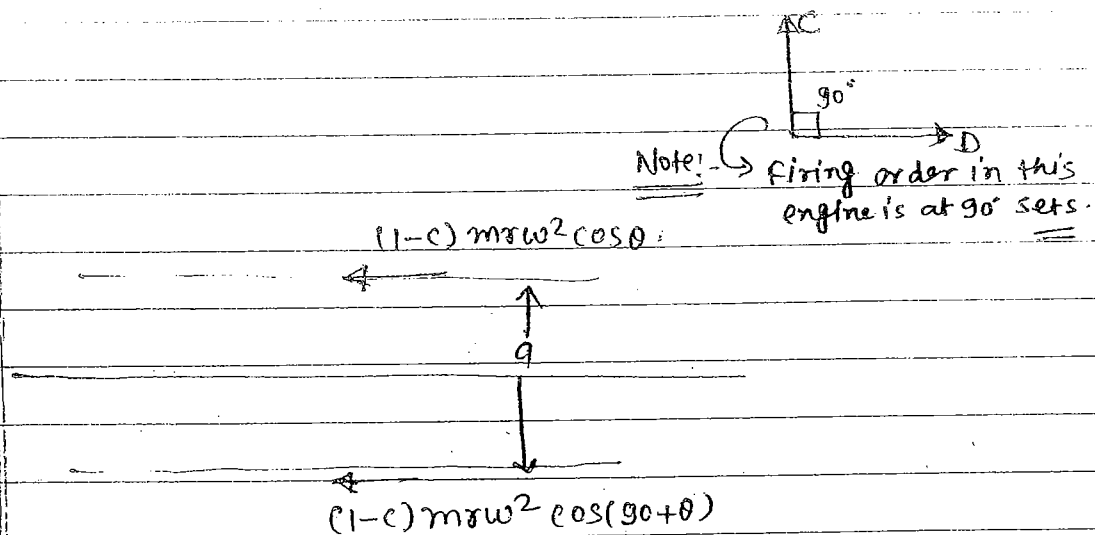 C
90°
D
Note:- Firing order in this
engine is at 90° sets.
(1-c) mrω² cosθ.
a
(1-c) mrω² cos(90+θ)